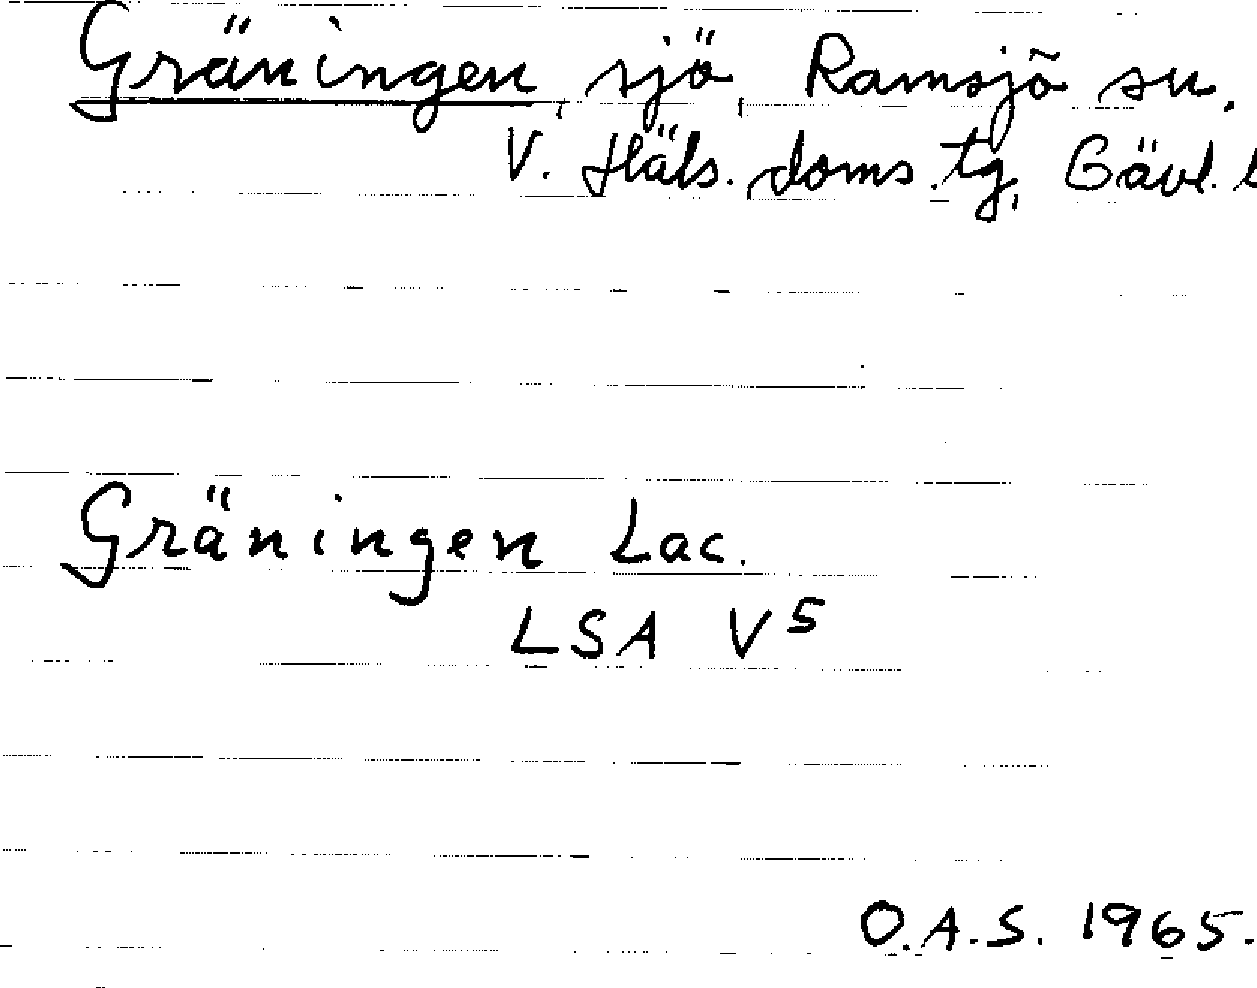 Gräningen, sjö, Ramsjö sn.
V. Häls. doms. tg, Gävl. l
Gräningen Lac.
LSA V5
O.A.S. 1965.